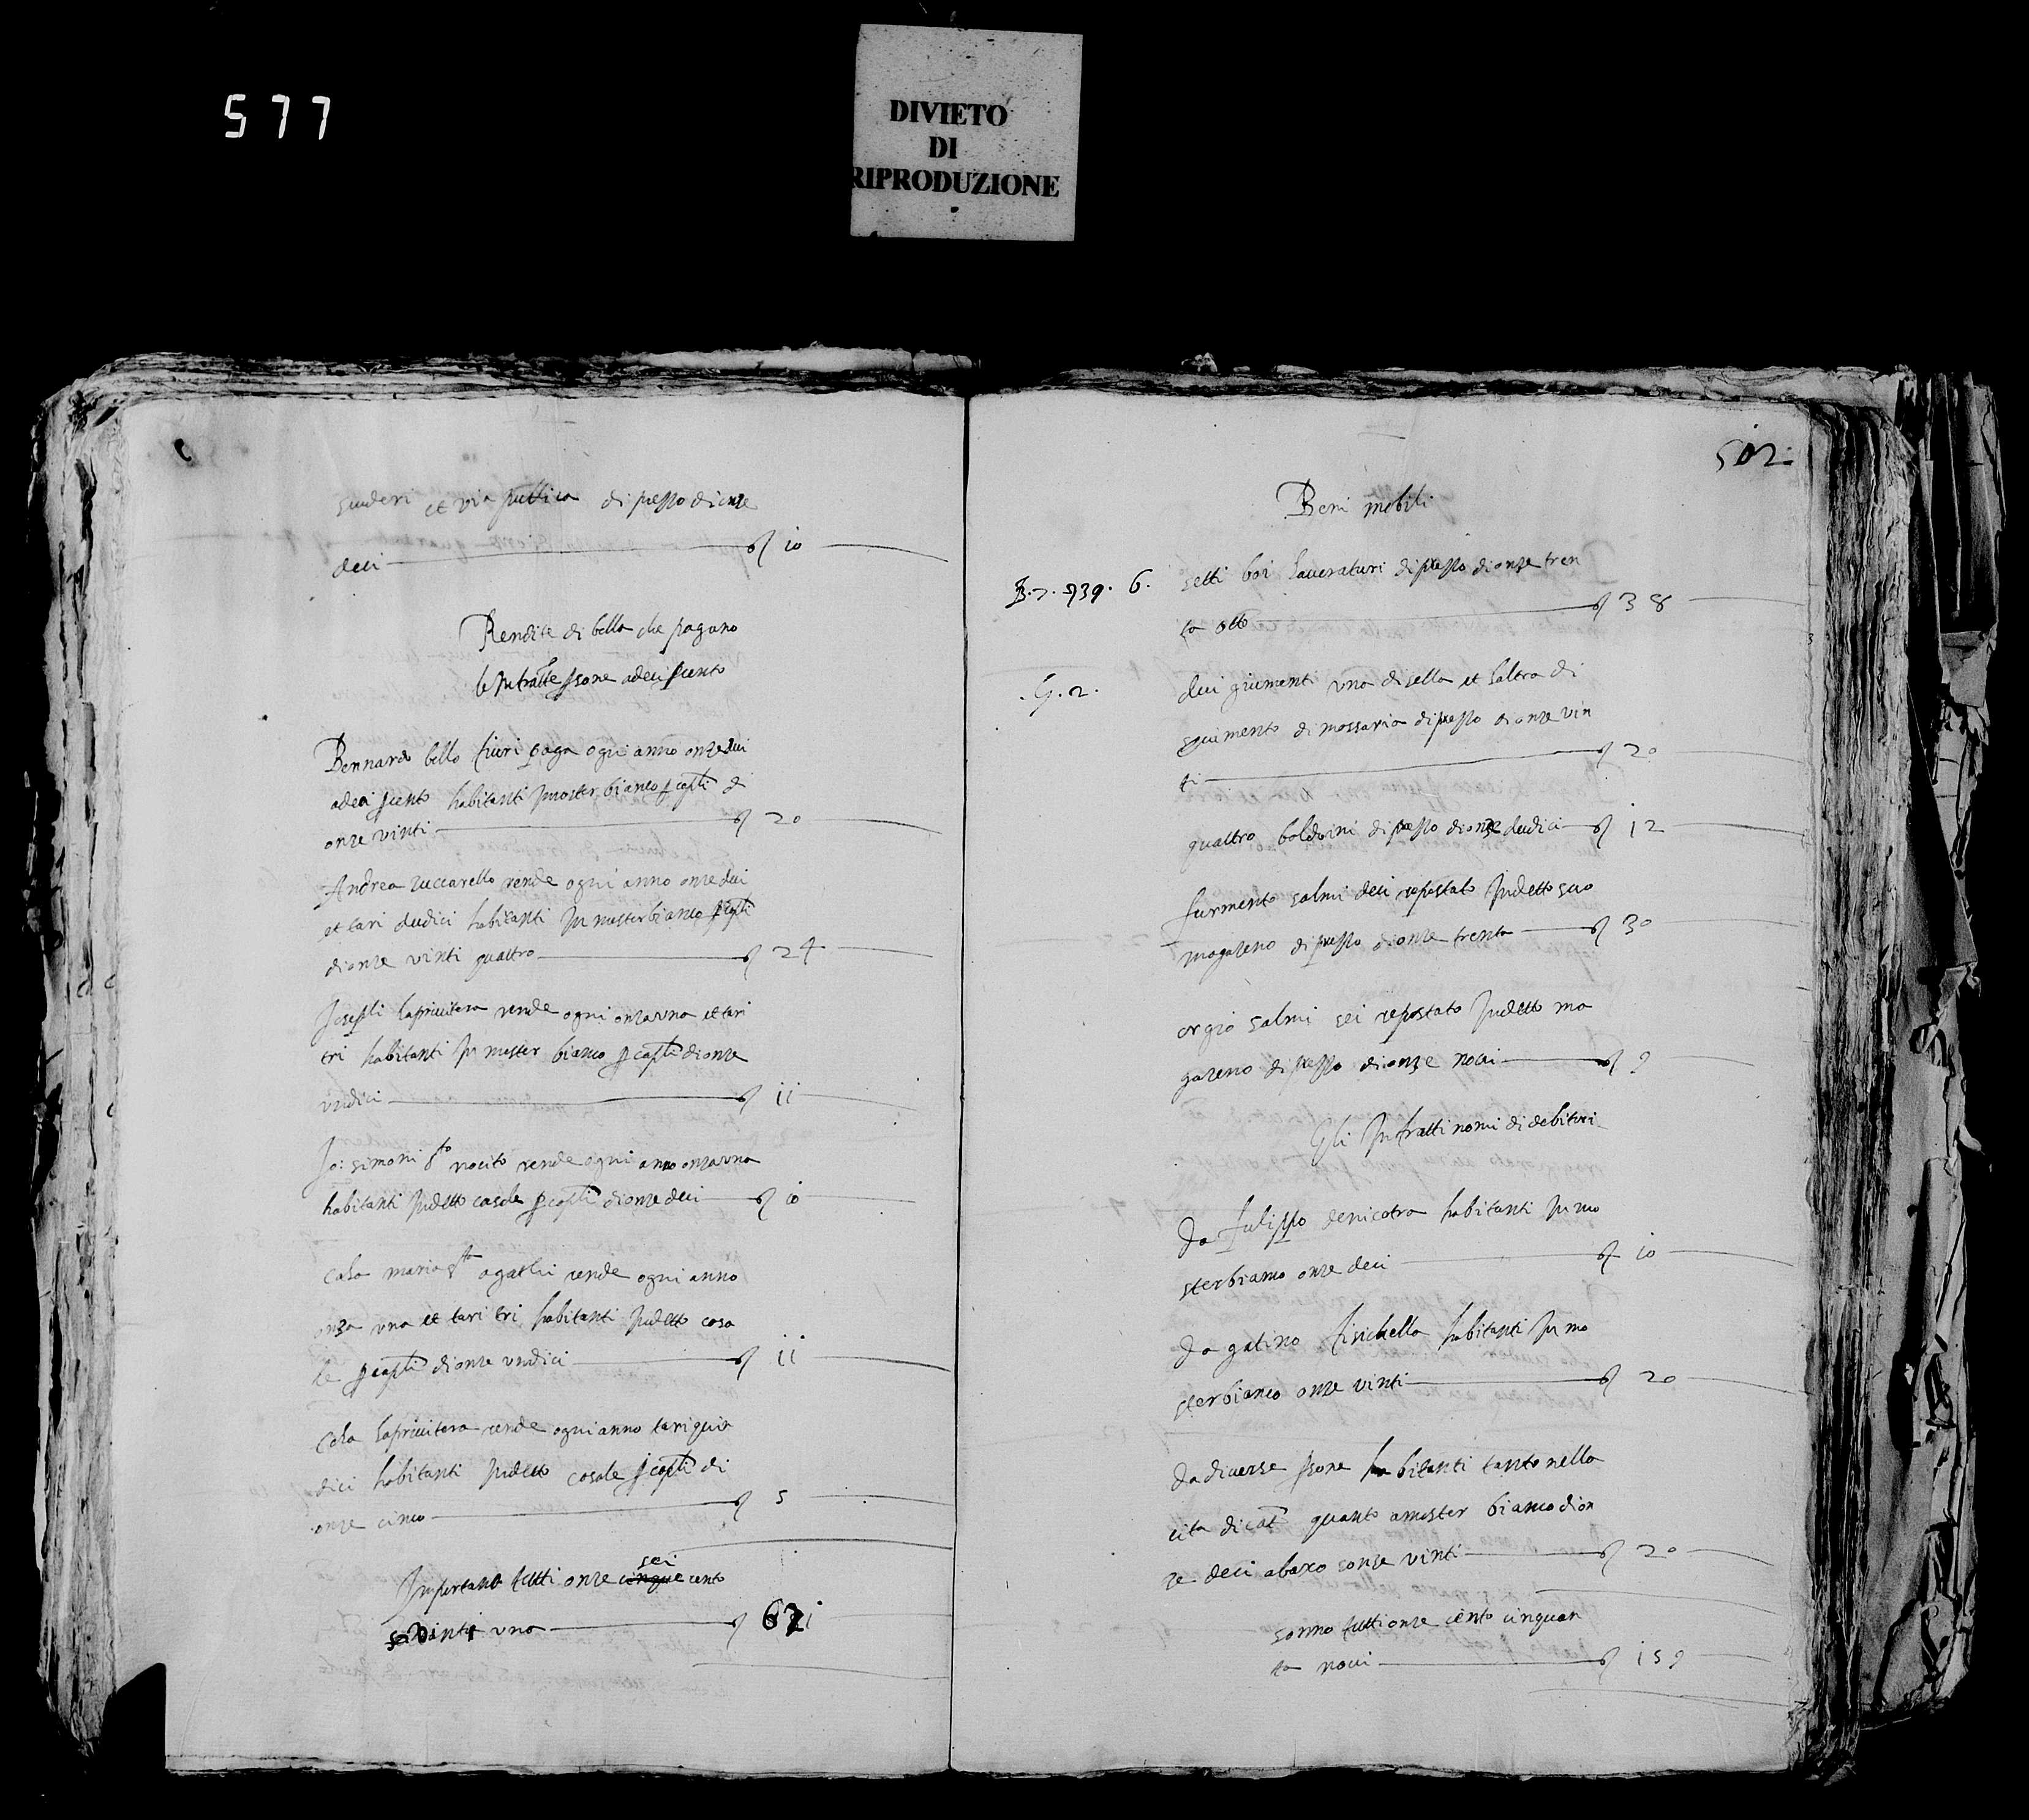 577
DIVIETO
DI
RIPRODUZIONE
suderi et via publica di prezzo di onze
deci ꝫ 10
Rendite di bolla che pagano
le infratte persone a deci per cento
Bennardo bello fiuri paga ogni anno onze dui
a deci per cento habitanti in muster bianco per capitali di
onze vinti 20
Andrea zuccarello rende ogni anno onze dui
et tari dudici habitanti in muster bianco per capitali
di onze vinti quattro 24
Joseppi lapriuitera rende ogni onza una et tari
tri habitanti in muster bianco per capitali di onze
undici 11
Jo: simoni sto nocito rende ogni anno onza una
habitanti in detto casale per capitali di onze deci 10
Cola maria sta agathi rende ogni anno
onza una et tari tri habitanti in detto casa
le per capitali di onze undici 11
Cola lapriuitera rende ogni anno tari quin
dici habitanti in detto casale per capitali di
onze cinco 5
Importano tutti onze sei cento
vinti uno 621
502
Beni mobili
B. 7. 939. 6. setti boi lauuraturi di prezzo di onze tren
ta otto 38
.G. 2. dui giumenti una di sella et l altra di
di massaria di prezzo di onze vin
ti 20
quattro bolduini di prezzo di onze dudici 12
furmento salmi deci repostato in detto suo
magazeno di prezzo di onze trenta 30
orgio salmi sei repostato in detto ma
gazeno di prezzo di onze noui 9
Gli infratti nomi di debitori
Da fulippo denicotra habitanti in mu
sterbianco onze deci 10
Da gatino fisichella habitanti in mu
sterbianco onze vinti 20
Da diuerse persone habitanti tanto nella
cita di cat quanto a muster bianco di on
ze deci abaxo onze vinti 20
sonno tutti onze cento cinquan
ta noui 159